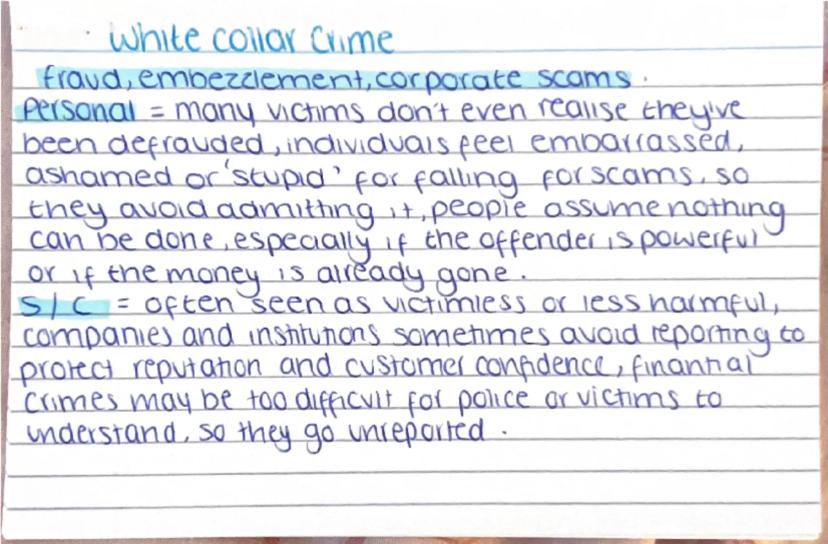 White collar crime
fraud, embezzlement, corporate scams.
Personal = many victims don't even realise they've
been defrauded, individuals feel embarrassed,
ashamed or 'stupid' for falling for scams, so
they avoid admitting it, people assume nothing
can be done, especially if the offender is powerful
or if the money is already gone.
S/C = often seen as victimless or less harmful,
companies and institutions sometimes avoid reporting to
protect reputation and customer confidence, finantial
crimes may be too difficult for police or victims to
understand, so they go unreported.